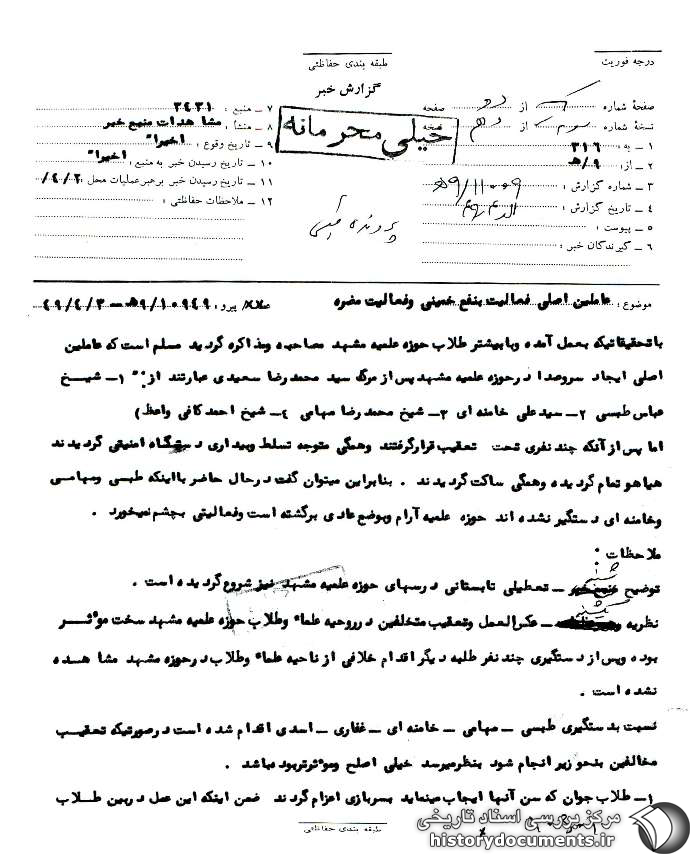 درجه فوریت
طبقه بندی حفاظتی
گزارش خبر
خیلی محرمانه
صفحهٔ شماره یک از دو صفحه
نسخهٔ شماره سوم از دهم نسخه
۱ – به : ۳۱۶
۲ – از: ۹/هـ
۳ – شماره گزارش : ۹/۱۱۰۰۹هـ
۴ – تاریخ گزارش :
۵ – پیوست :
۶ – گیرندگان خبر :
۷ – منبع : ۳۴۳۱
۸ – منشأ : مشاهدات منبع خبر
۹ – تاریخ وقوع : اخیرا"
۱۰ – تاریخ رسیدن خبر به منبع : اخیرا"
۱۱ – تاریخ رسیدن خبر برهبرعملیات محل : /۴/۲
۱۲ – ملاحظات حفاظتی :
پرونده
موضوع : عاملین اصلی فعالیت بنفع خمینی وفعالیت مضره پیرو : ۹/۱۰۹۴۹هـ – ۴۹/۴/۳
باتحقیقاتیکه بعمل آمده وبا بیشتر طلاب حوزه علمیه مشهد مصاحبه ومذاکره گردید مسلم است که عاملین
اصلی ایجاد سروصدا درحوزه علمیه مشهد پس از مرگ سید محمد رضا سعیدی عبارتند از : ۱– شیخ
عباس طبسی ۲– سید علی خامنه ای ۳– شیخ محمد رضا مهامی ۴– شیخ احمد کافی واعظ)
اما پس از آنکه چند نفری تحت تعقیب قرارگرفتند وهمگی متوجه تسلط وبیداری دستگاه امنیتی گردیدند
هیاهو تمام گردیده وهمگی ساکت گردیدند . بنابراین میتوان گفت درحال حاضر بااینکه طبسی ومهامی
وخامنه ای دستگیر نشده اند حوزه علمیه آرام وبوضع عادی برگشته است وفعالیتی بچشم نمیخورد .
ملاحظات :
توضیح شنبه – تعطیلی تابستانی درسهای حوزه علمیه مشهد نیز شروع گردیده است .
نظریه یکشنبه – عکس العمل وتعقیب متخلفین در روحیه علماء وطلاب حوزه علمیه مشهد سخت موثر
بوده وپس از دستگیری چند نفر طلبه دیگر اقدام خلافی از ناحیه علماء وطلاب درحوزه مشهد مشاهده
نشده است .
نسبت بدستگیری طبسی – مهامی – خامنه ای – غفاری – اسدی اقدام شده است درصورتیکه تعقیب
مخالفین بنحو زیر انجام شود بنظرمیرسد خیلی اصلح وموثرتربود مباشد .
۱– طلاب جوان که سن آنها ایجاب مینماید بسربازی اعزام گردند ضمن اینکه این عمل در بین طلاب
طبقه بندی حفاظتی
مرکز بررسی اسناد تاریخی
historydocuments.ir